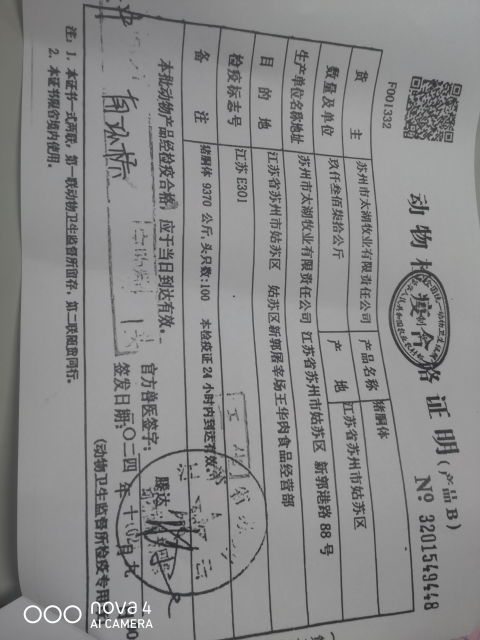 动物检疫合格证明(产品B)
F001332
Nº 3201549448
货 主 苏州市太湖牧业有限责任公司 产品名称 猪胴体
数量及单位 玖仟叁佰柒拾公斤 产 地 江苏省苏州市姑苏区
生产单位名称地址 苏州市太湖牧业有限责任公司 江苏省苏州市姑苏区 新郭港路 88 号
目 的 地 江苏省苏州市姑苏区 姑苏区新郭屠宰场王华肉食品经营部
检疫标志号 江苏 E301
备 注 猪胴体 9370 公斤,头只数:100 本检疫证 24 小时内到达有效
本批动物产品经检疫合格,应于当日到达有效。
官方兽医签字: 腾达
签发日期: 二〇二四 年 十 月 九
(动物卫生监督所检疫专用
注: 1. 本证书一式两联,第一联动物卫生监督所留存,第二联随货同行。
2. 本证书限省境内使用。
nova 4
AI CAMERA